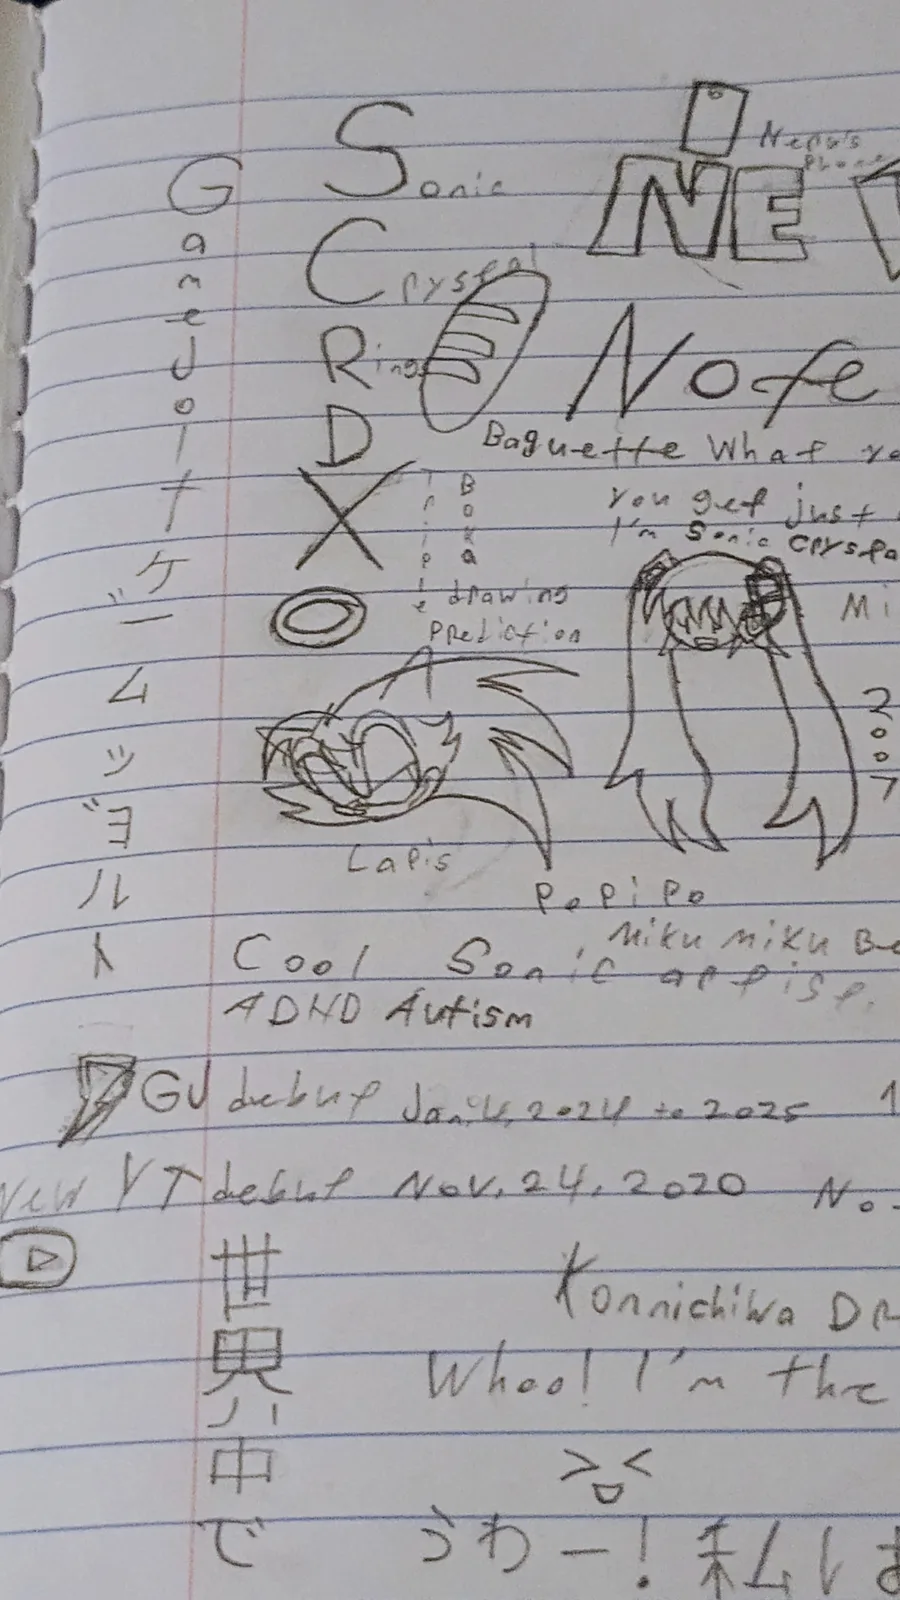 GameJolt
ゲームジョルト
Sonic
Crystal
Rings
D
X
NE
Note
Baguette What
you get just
I'm Sonic crysta
Triple
Boka
drawing
Prediction
Mi
2007
Lapis
PoPiPo
Miku Miku Be
Cool Sonic artist.
ADHD Autism
GJ debut Jan.4, 2024 to 2025
New YT debut Nov. 24, 2020 No
世界中で
Konnichiwa DR
Whoo! I'm the
うわー!私しお